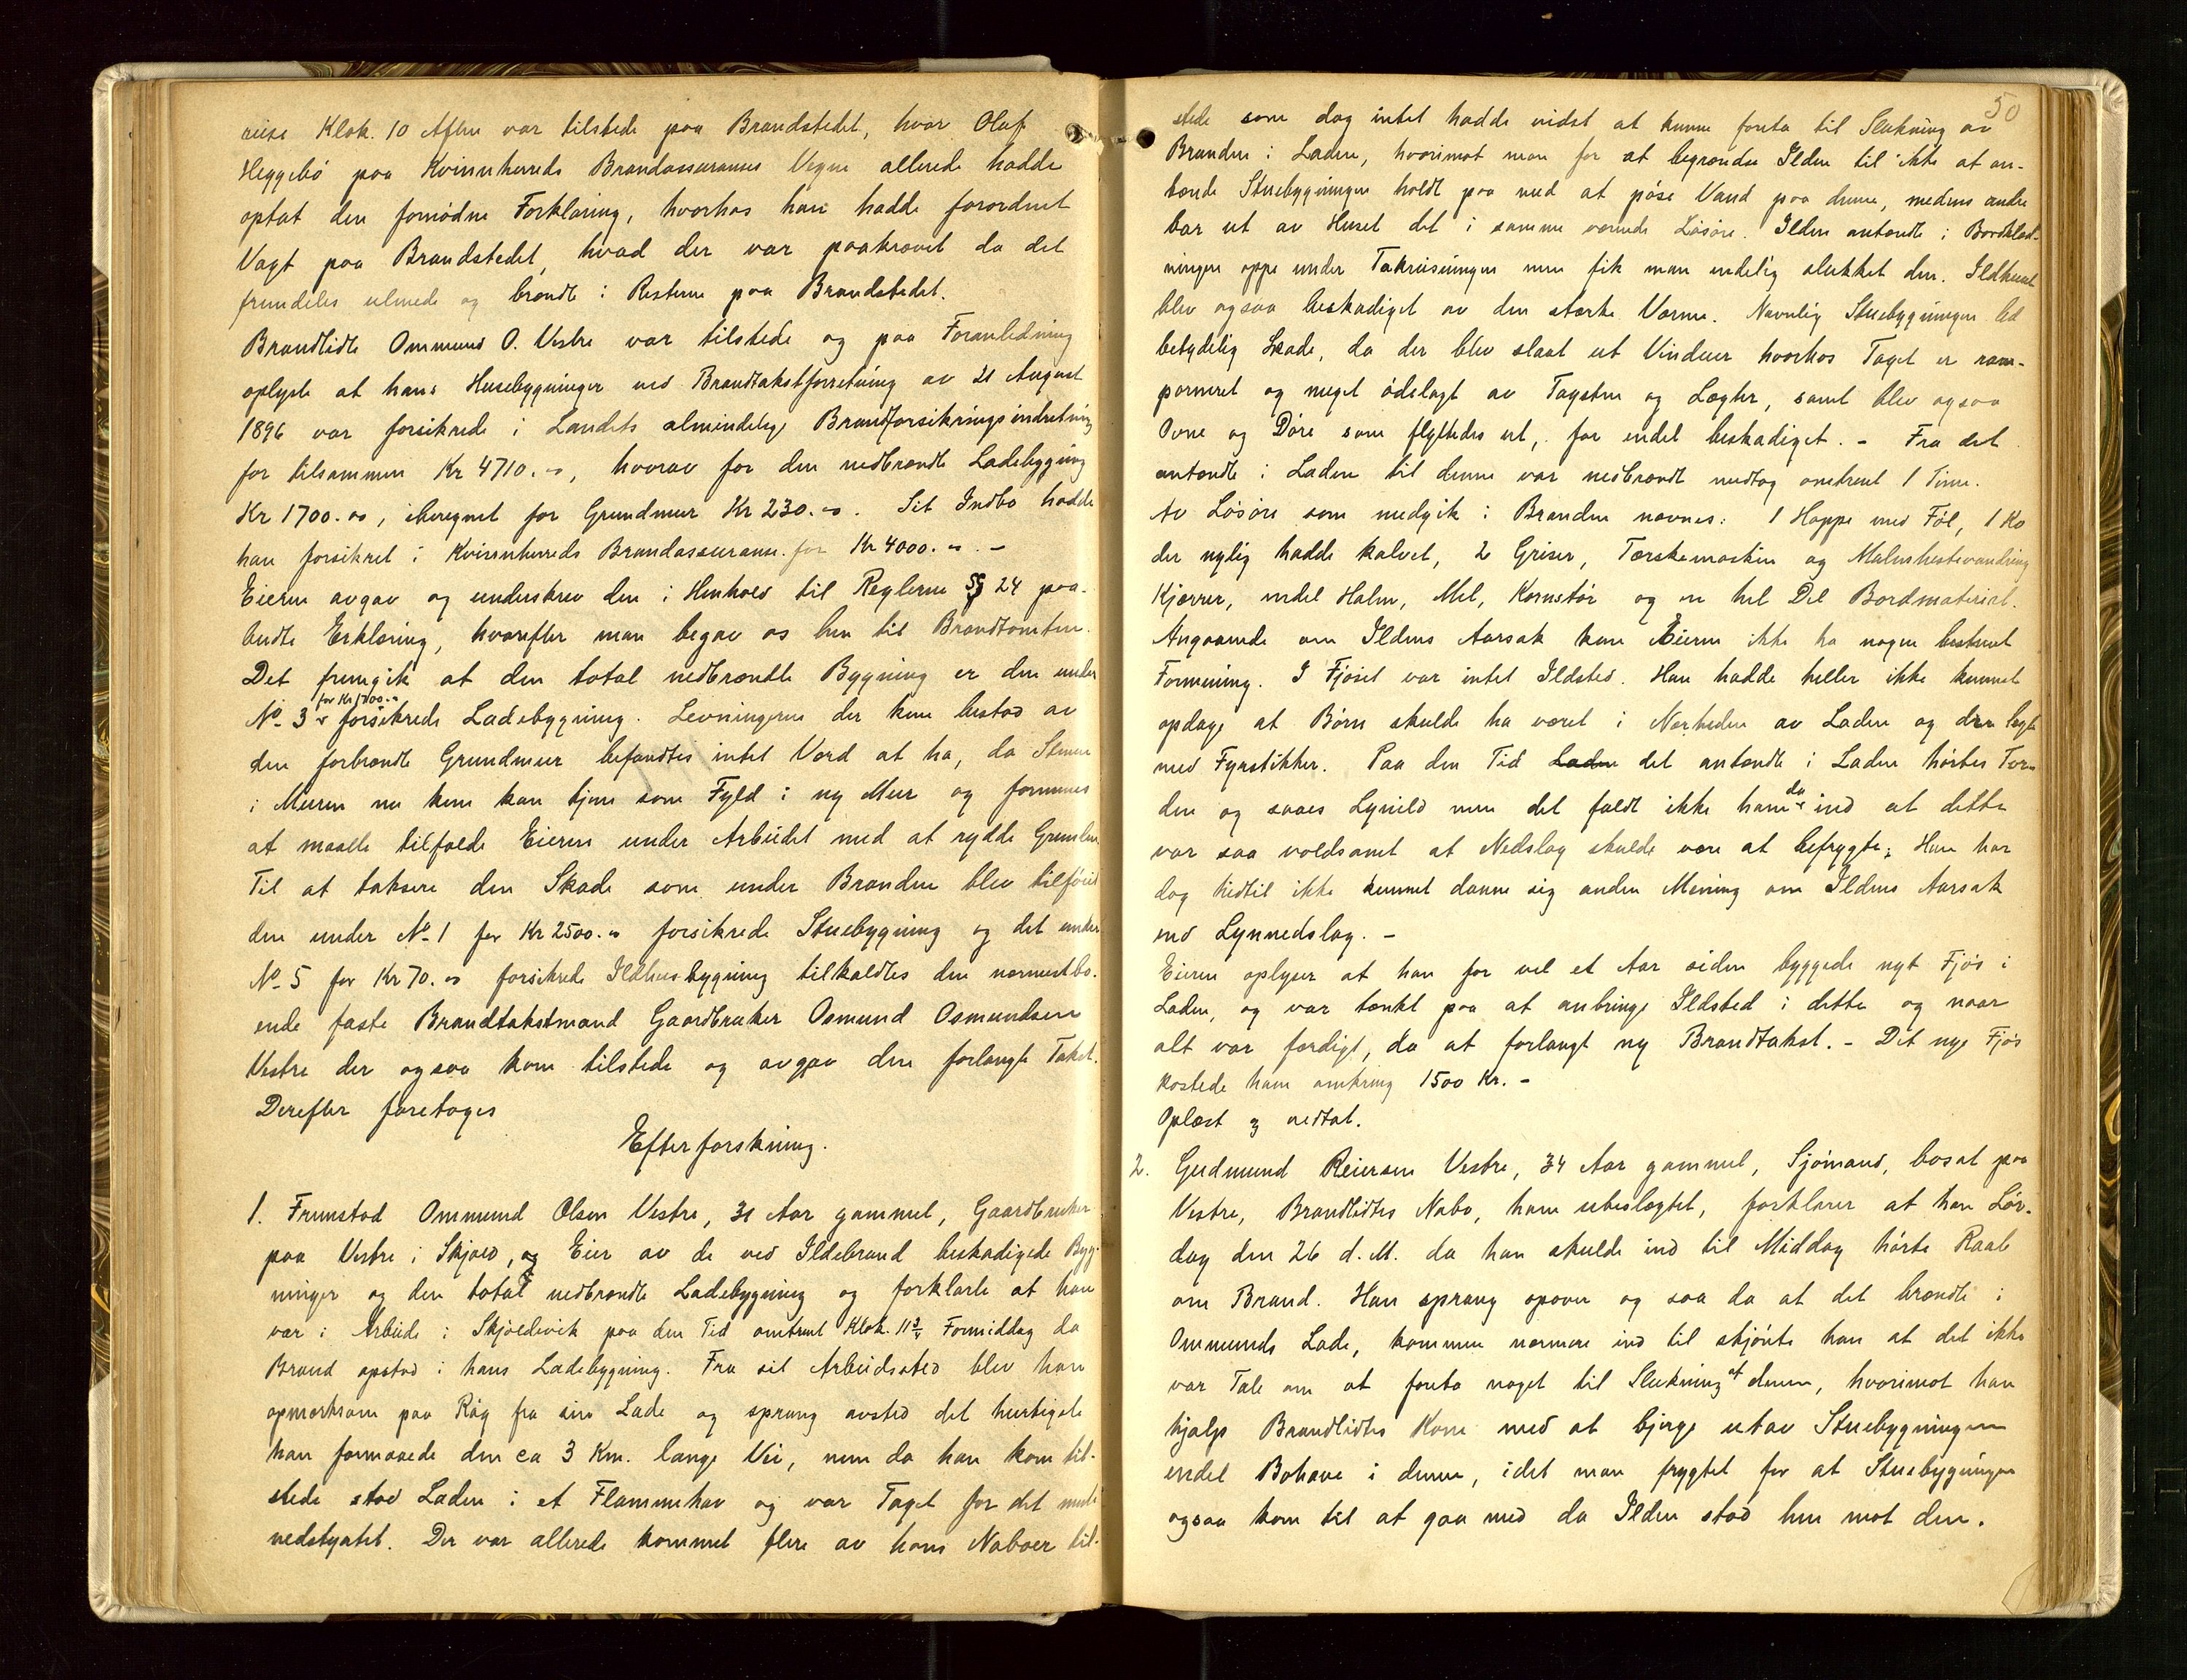 reise Klok. 10 Aften var tilstede paa Brandstedet, hvor Olaf
Heggebö paa Kvinnherreds Brandassuranses Vegne allerede hadde
optat den fornödne Forklaring, hvorhos han hadde forordnet
Vagt paa Brandstedet, hvad der var paakrævet da det
fremdeles ulmede og brændte i Resterne paa Brandstedet.
Brandlidte Ommund O. Vestre var tilstede og paa Foranledning
oplyste at hans Husebygninger ved Brandtakstforretning av 21 August
1896 var forsikrede i Landets almindelige Brandforsikringsindretning
for tilsammen Kr 4710.00, hvorav for den nedbrændte Ladebygning
Kr 1700.00, iberegnet for Grundmur Kr 230.00. Sit Indbo hadde
han forsikret i Kvinnherreds Brandassuranse for Kr 4000.00. -
Eieren avgav og underskrev den i Henhold til Reglerne § 24 paa-
budte Erklæring, hvorefter man begav os hen til Brandtomten.
Det fremgik at den total nedbrændte Bygning er den under
No 3 for Kr 1700.00 forsikrede Ladebygning. Levningerne der kun bestod av
den forbrændte Grundmur befandtes intet Værd at ha, da Stenen
i Muren nu kun kan tjene som Fyld i ny Mur og formenes
at maatte tilfalde Eieren under Arbeidet med at rydde Grunden.
Til at taksere den Skade som under Branden blev tilföiet
den under No 1 for Kr 2500.00 forsikrede Stuebygning og det under
No 5 for Kr 70.00 forsikrede Ildhusbygning tilkaldtes den nærmestbo-
ende faste Brandtakstmand Gaardbruker Osmund Osmundsen
Vestre der ogsaa kom tilstede og avgav den forlangte Takst.
Derefter foretoges
Efterforskning.
1. Fremstod Ommund Olsen Vestre, 31 Aar gammel, Gaardbruker
paa Vestre i Skjold, og Eier av de ved Ildebrand beskadigede Byg-
ninger og den total nedbrændte Ladebygning og forklarte at han
var i Arbeide i Skjoldevik paa den Tid omtrent Klok. 11¾ Formiddag da
Brand opstod i hans Ladebygning. Fra sit Arbeidssted blev han
opmerksom paa Røg fra sin Lade og sprang avsted det hurtigste
han formaaede den ca 3 Km. lange Vei, men da han kom til-
stede stod Laden i et Flammehav og var Taget for det meste
nedstyrtet. Der var allerede kommet flere av hans Naboer til-
50
stede som dog intet hadde vidst at kunne foreta til Slukning av
Branden i Laden, hvorimot man for at begrændse Ilden til ikke at an-
tænde Stuebygningen holdt paa med at pöse Vand paa denne, medens andre
bar ut av Huset det i samme værende Lösöre. Ilden antændte i Bordklæd-
ningen oppe under Takreisningen men fik man endelig slukket den. Ildhuset
blev ogsaa beskadiget av den stærke Varme. Navnlig Stuebygningen led
betydelig Skade, da der blev slaat ut Vinduer hvorhos Taget er ram-
poneret og meget ödelagt av Tagsten og Lægter, samt blev ogsaa
Ovne og Döre som flyttedes ut, for endel beskadiget. - Fra det
antændte i Laden til denne var nedbrændt medtog omtrent 1 Time.
Av Lösöre som medgik i Branden nævnes: 1 Hoppe med Föl, 1 Ko
der nylig hadde kalvet, 2 Griser, Tærskemaskin og Hestevandring
Kjærrer, endel Halm, Mel, Kornstör og en hel Del Bordmaterial.
Angaaende om Ildens Aarsak kan Eieren ikke ha nogen bestemt
Formening. I Fjöset var intet Ildsted. Han hadde heller ikke kunnet
opdage at Börn skulde ha været i Nærheden av Laden og der lagte
med Fyrstikker. Paa den Tid Laden det antændte i Laden hörtes Tor-
den og saaes Lynild men det faldt ikke ham da ind at dette
var saa voldsomt at Nedslag skulde være at befrygte; Han har
dog hidtil ikke kunnet danne sig anden Mening om Ildens Aarsak
end Lynnedslag. -
Eieren oplyser at han for vel et Aar siden byggede nyt Fjös i
Laden, og var tænkt paa at anbringe Ildsted i dette og naar
alt var færdigt, da at forlangt ny Brandtakst. - Det nye Fjös
kostede ham omkring 1500 Kr. -
Oplæst og vedtat.
2. Gudmund Reiersen Vestre, 34 Aar gammel, Sjömand, bosat paa
Vestre, Brandlidtes Nabo, ham ubeslægtet, forklarer at han Lör-
dag den 26 d. M. da han skulde ind til Middag hörte Raab
om Brand. Han sprang opover og saa da at det brændte i
Ommunds Lade, kommen nærmere ind til skjönte han at det ikke
var Tale om at foreta noget til Slukning af denne, hvorimot han
hjalp Brandlidtes Kone med at bjerge utav Stuebygningen
endel Bohave i denne, idet man frygtet for at Stuebygningen
ogsaa kom til at gaa med da Ilden stod hen mot den.